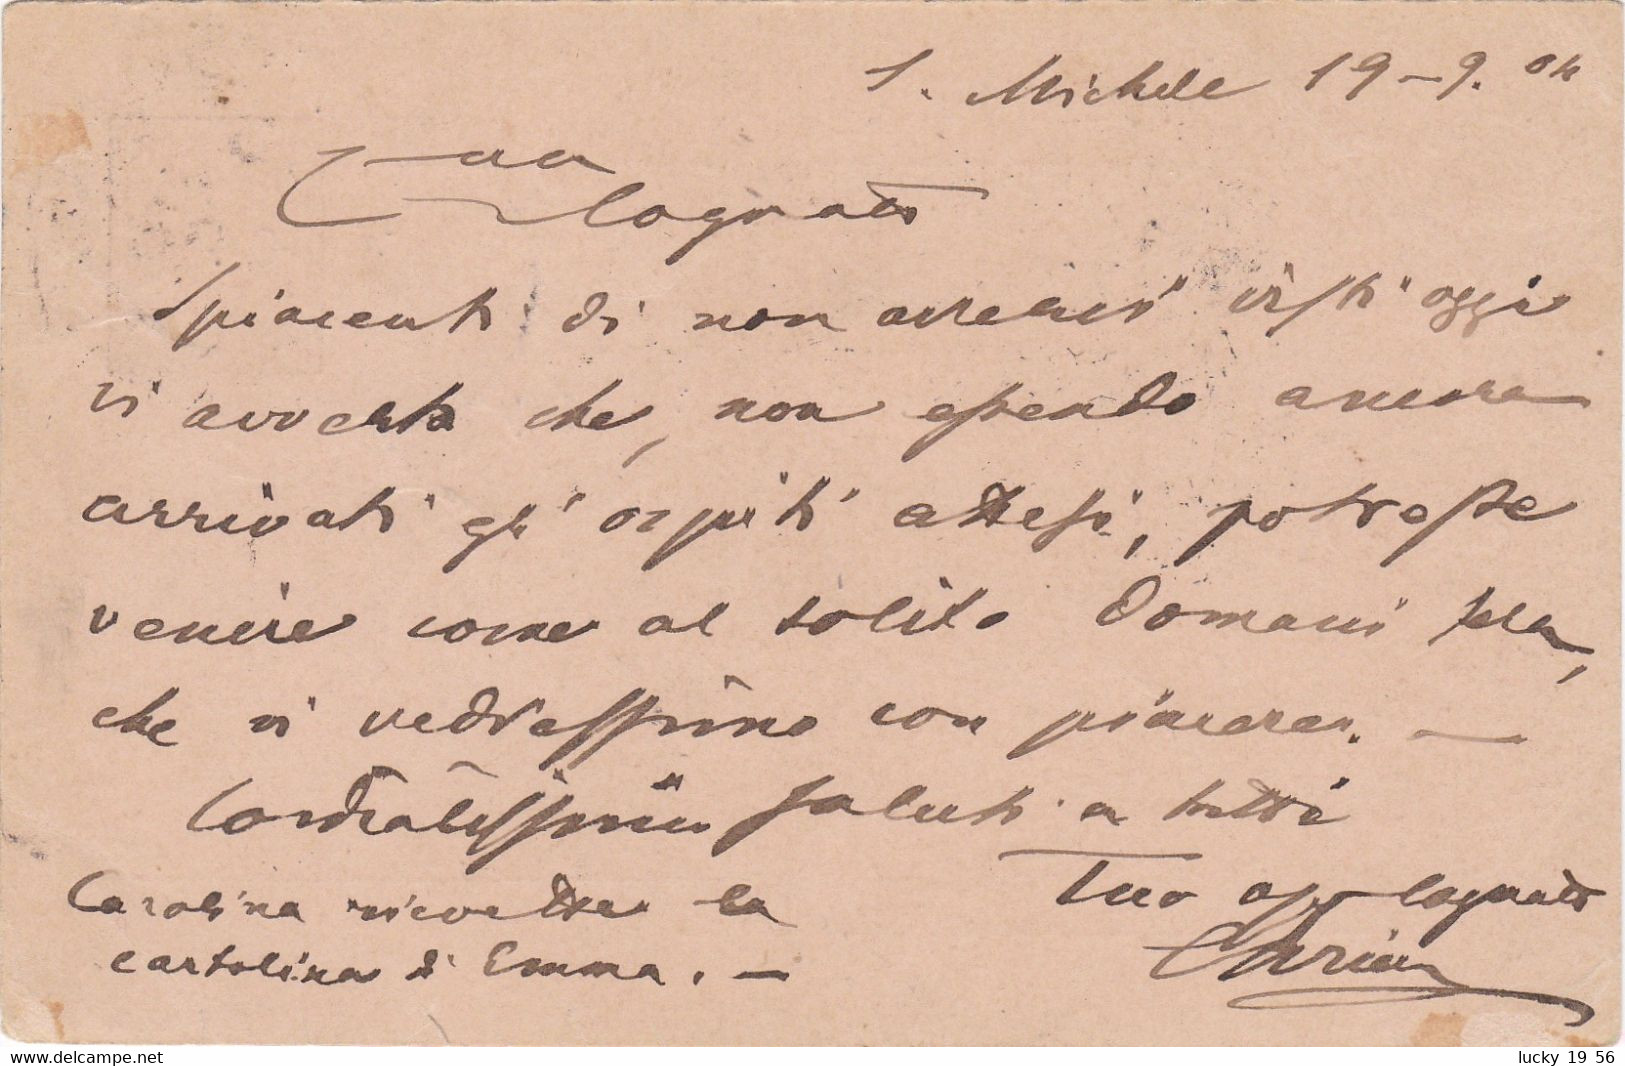 S. Michele 19-9.04
Caro
Cognato
Spiacenti di non averci visti oggi
vi avverto che, non essendo ancora
arrivati gli ospiti attesi, potreste
venire come al solito domani sera,
che vi vedressimo con piacere. —
Cordialissimi saluti a tutti
Tuo aff Cognato
Carolina ricevette la
cartolina di Emma. —
www.delcampe.net
lucky 19 56